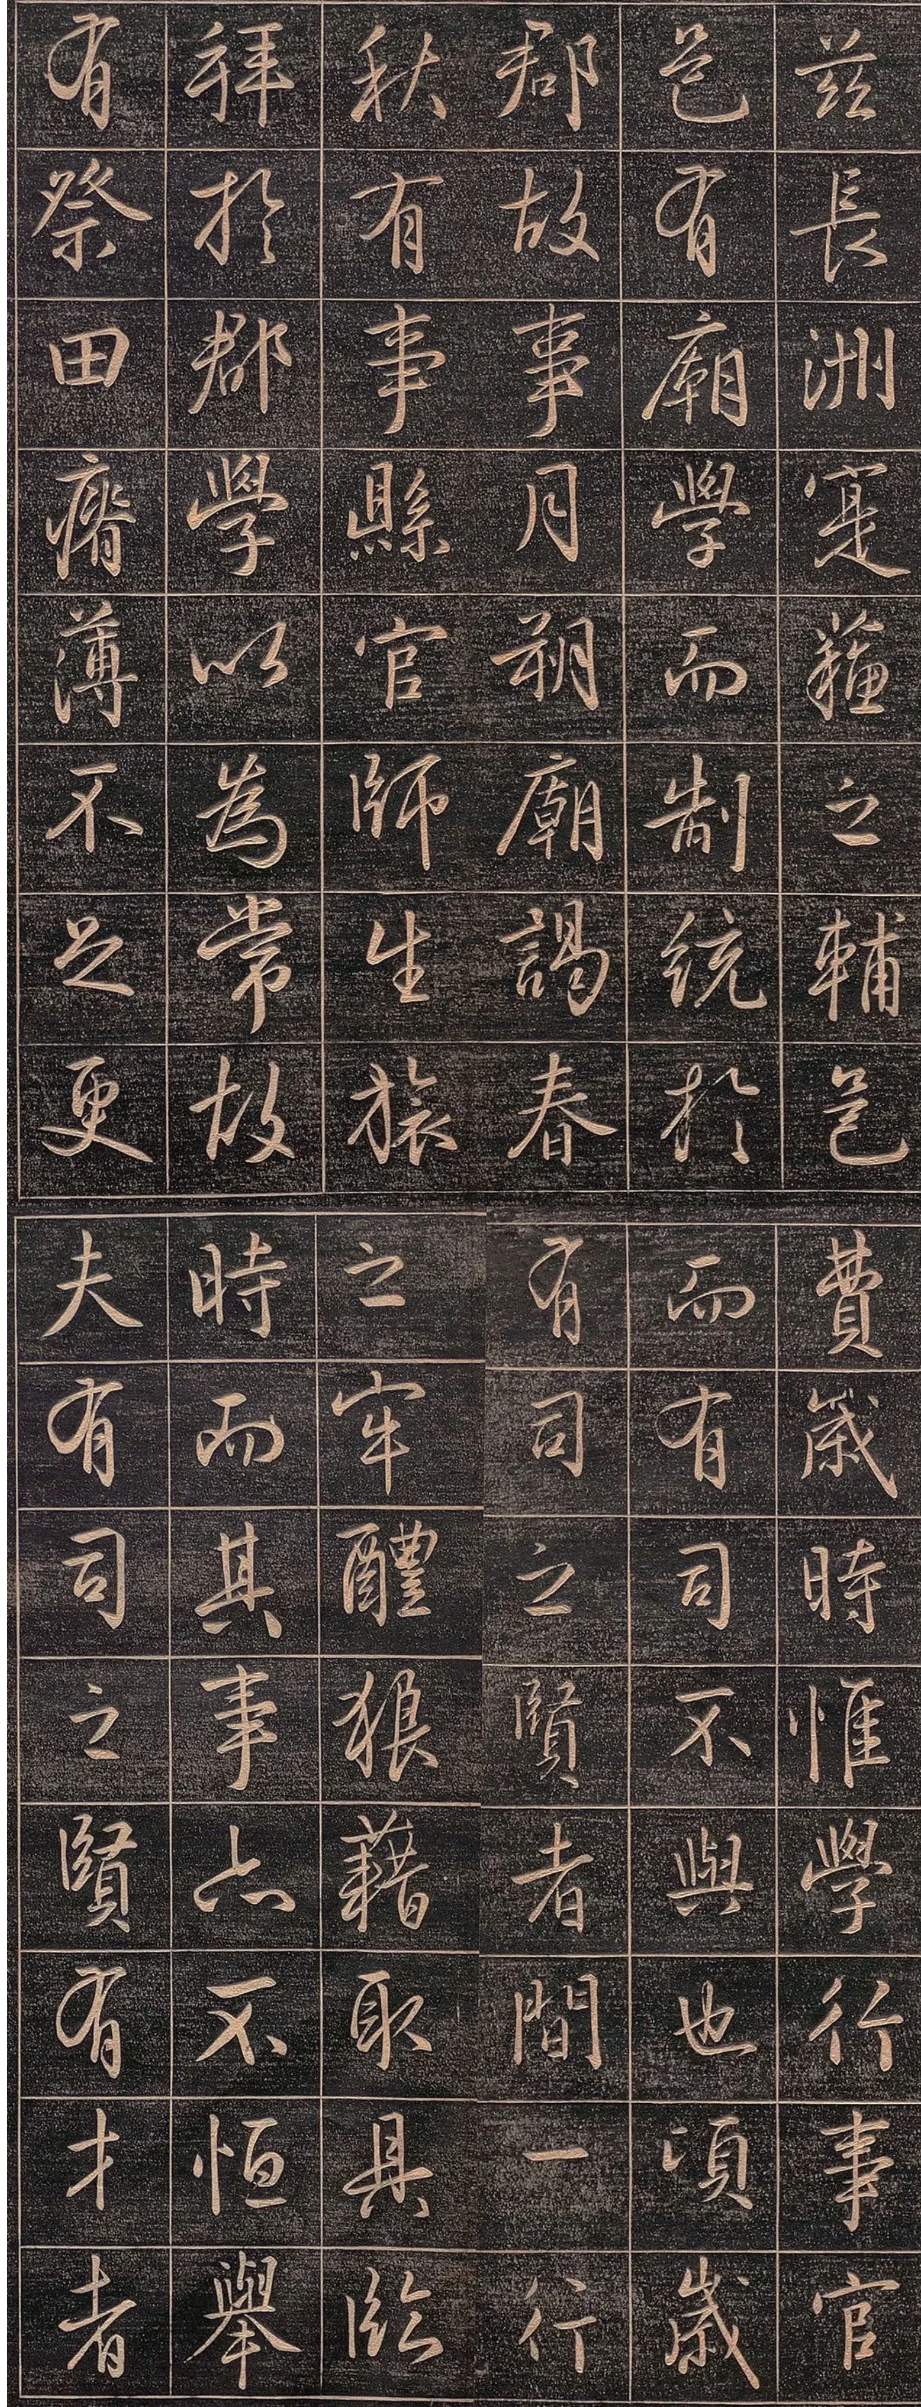 茲長洲寔蘓之輔邑
邑有廟學而制統於
郡故事月朔廟謁春
秋有事縣官師生旅
拜於郡學以為常故
有祭田瘠薄不足更
費歲時惟學行事官
而有司不與也頃歲
有司之賢者間一行
之牢醴狼藉取具臨
時而其事亦不恒舉
夫有司之賢有才者